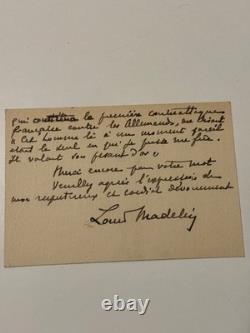 qui la première contre attaque
française contre les Allemands, me disant
« Cet homme là à un moment pareil
était le seul en qui je puisse me fier.
Il valait son pesant d'or »
Merci encore pour votre mot
Veuillez agréer l'expression de
mon respectueux et cordial dévouement
Louis Madelin